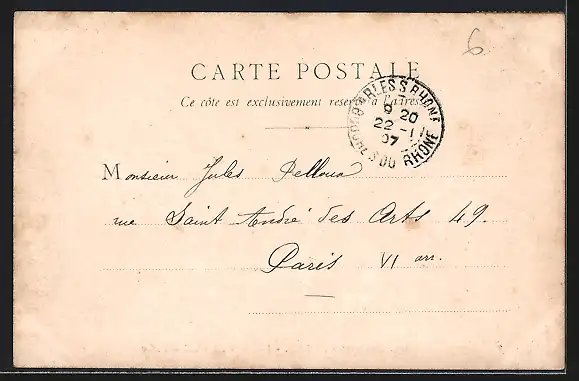 6
CARTE POSTALE
Ce côté est exclusivement réservé à l'adresse
ARLES S RHONE
9 20
22 - 11
07
DU RHONE
Monsieur Jules
rue Saint André des Arts 49.
Paris VI arr.